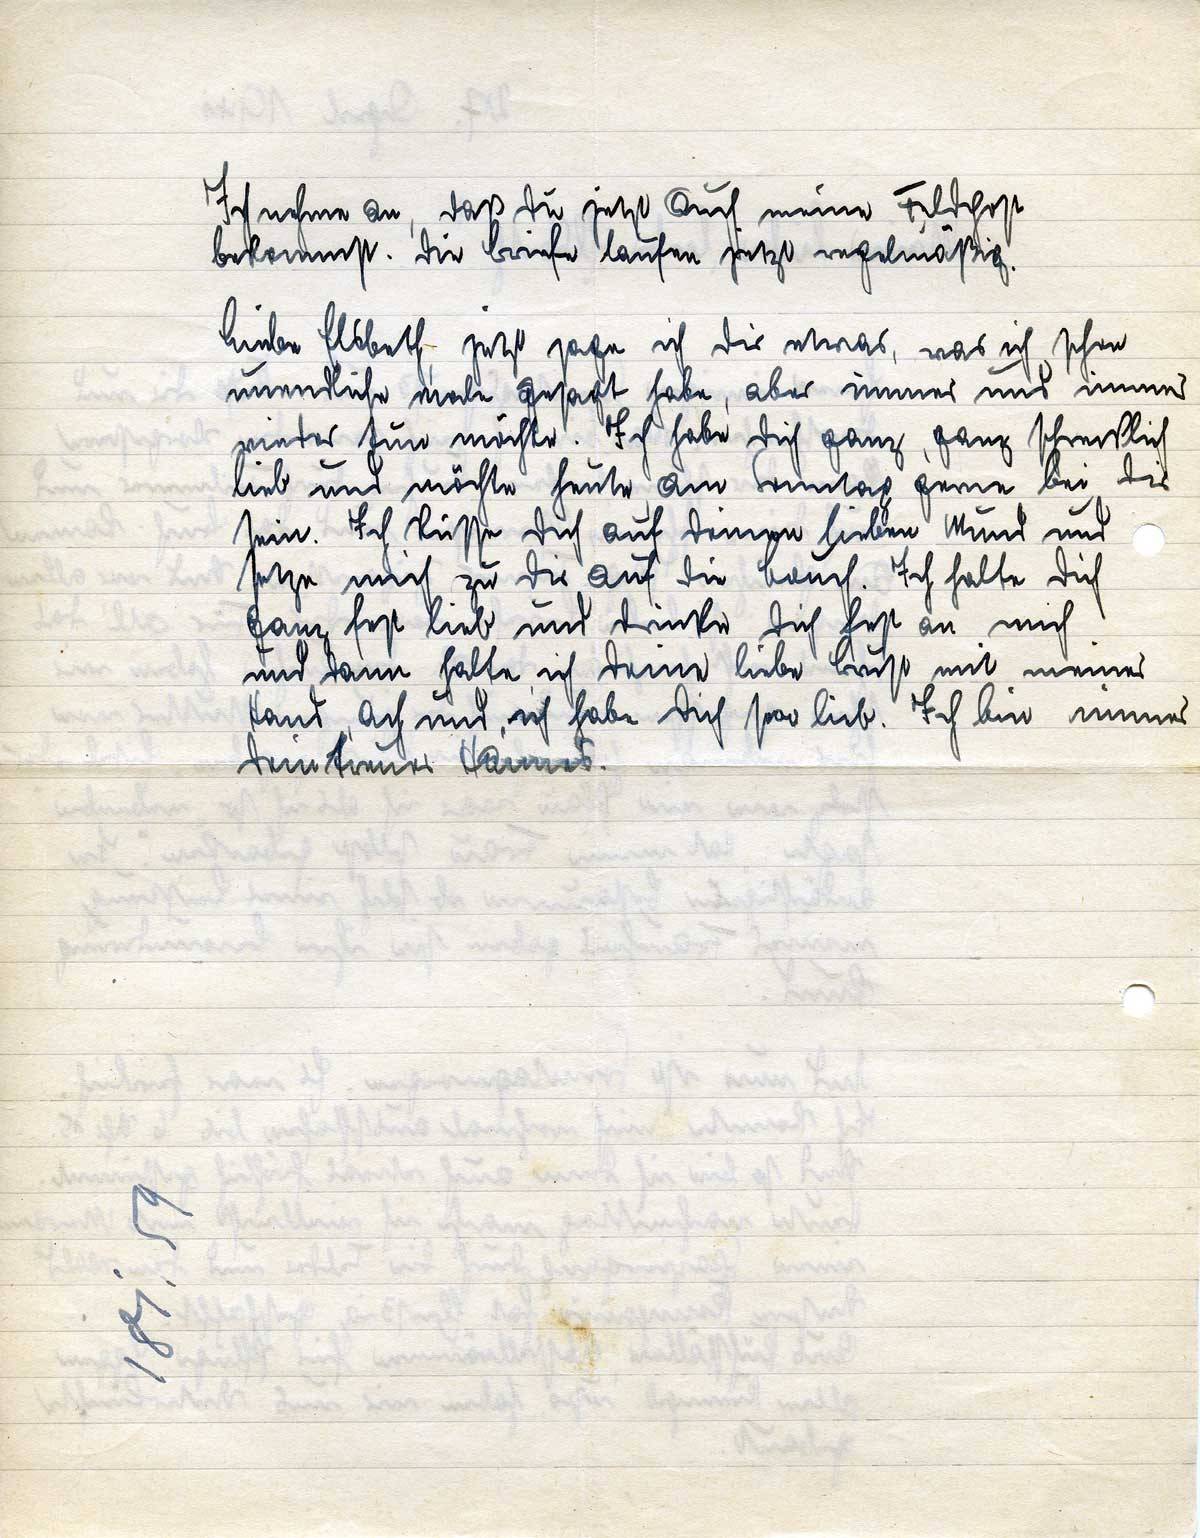 Ich nehme an, daß du jetzt auch meine Feldpost
bekommst. Die Briefe laufen jetzt regelmäßig.
Liebe Elsbeth, jetzt sage ich dir etwas, was ich schon
unendliche Male gesagt habe, aber immer und immer
wieder tun möchte. Ich habe dich ganz, ganz schrecklich
lieb und möchte heute am Sonntag gerne bei dir
sein. Ich küsse dich auf deinen lieben Mund und
setze mich zu dir auf die Couch. Ich halte dich
ganz fest lieb und drücke dich fest an mich
und dann halte ich deine liebe Brust mit meiner
Hand, ach und, ich habe dich soo lieb. Ich bin immer
dein treuer Hannes.